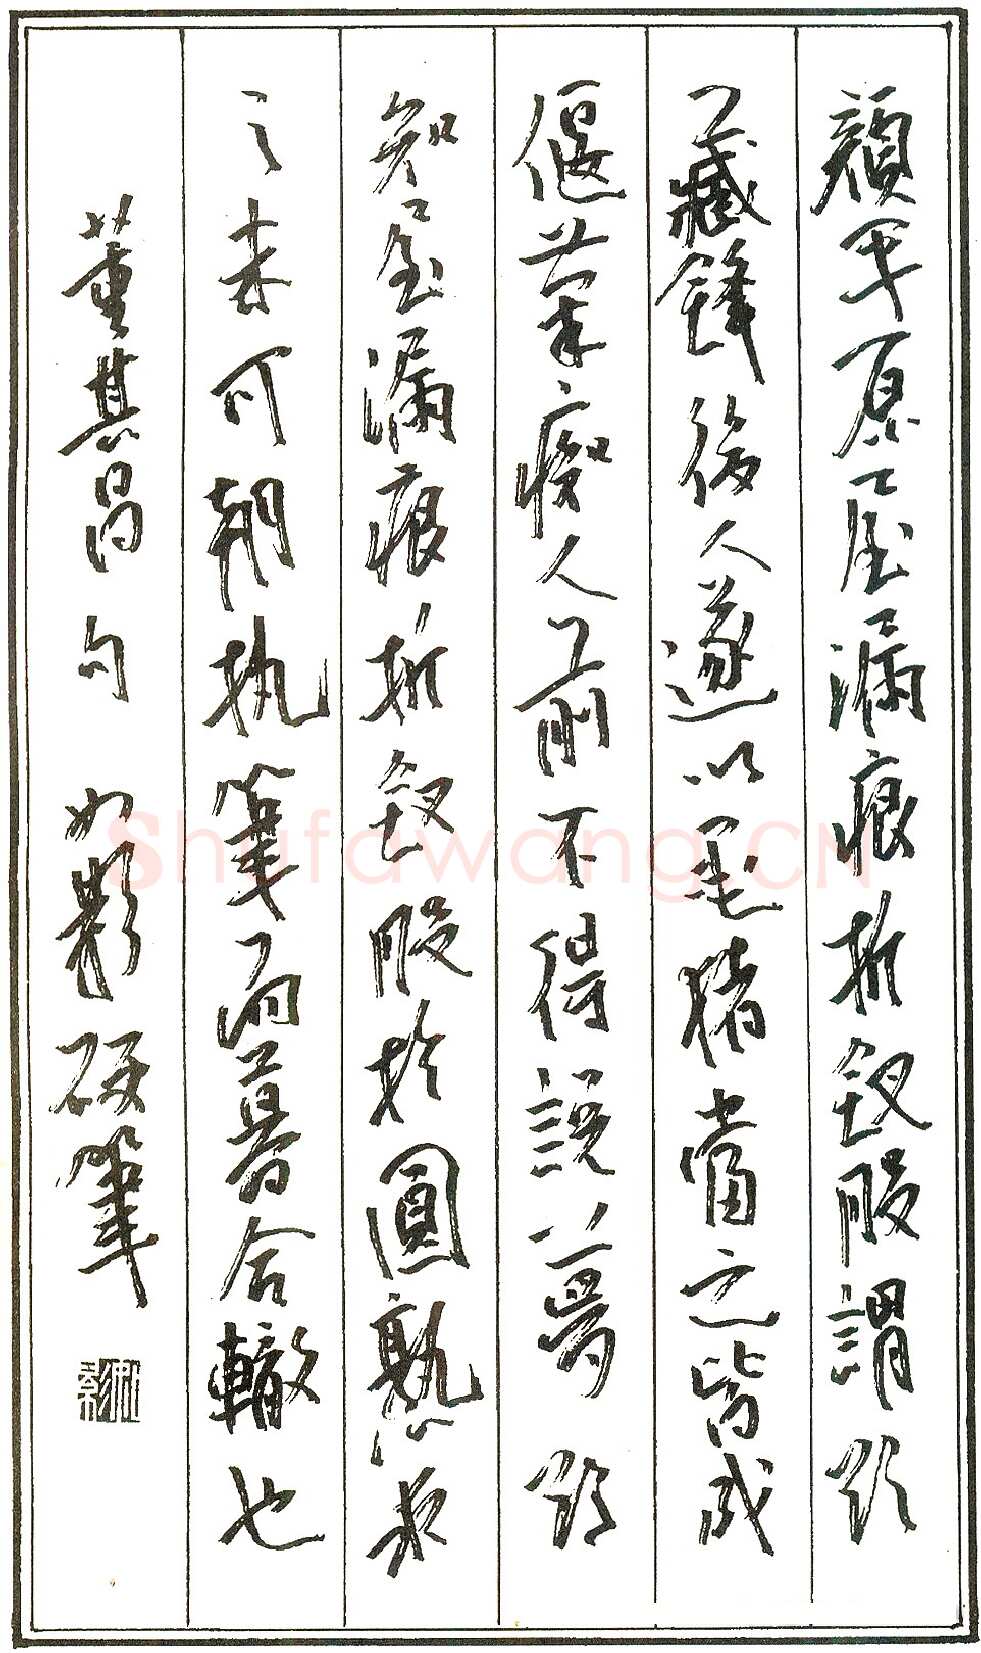 顏平原屋漏痕折釵股謂欲
藏鋒後人遂以墨猪當之皆成
偃筆癡人前不得說夢欲
知屋漏痕折釵股於圓熟求
之未可朝執筆而暮合轍也
董其昌句 如影硬筆
Shufawang.CN